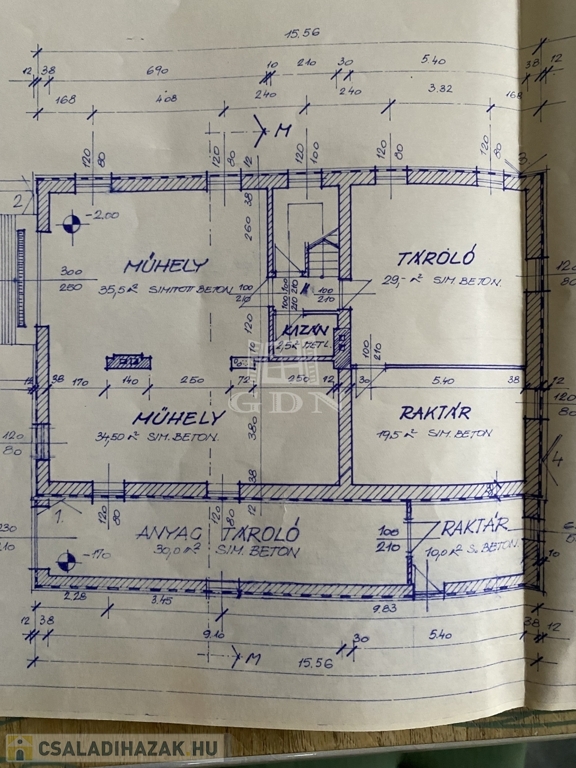 15.56
12 38 690 10 210 30 5.40 38 12
168 4.08 240 240 3.32 168
M
120 80 120 80 12 120 100 120 80 120 80 3.
2
38
-2.00
260
MŰHELY
TÁROLÓ
35,5 m² SIMÍTOTT BETON
29,- m² SIM. BETON.
300
260
100
210
100
210
120
80
KAZÁN
2,5 m² METL.
120
10
100
210
GDN
38 170 140 250 72 250 12 30 5.40 38 12
MŰHELY
RAKTÁR
34,50 m² SIM. BETON
19,5 m² SIM. BETON
380
120
80
120
80
4
38
12
1.
120 80 120 80
230
210
ANYAG TÁROLÓ
30,0 m² SIM. BETON
100
210
RAKTÁR
10,0 m² S. BETON.
-1.70
2.28 3.45 9.83
12 38 9.10 30 5.40 38 12
M
15.56
CSALADIHAZAK HU